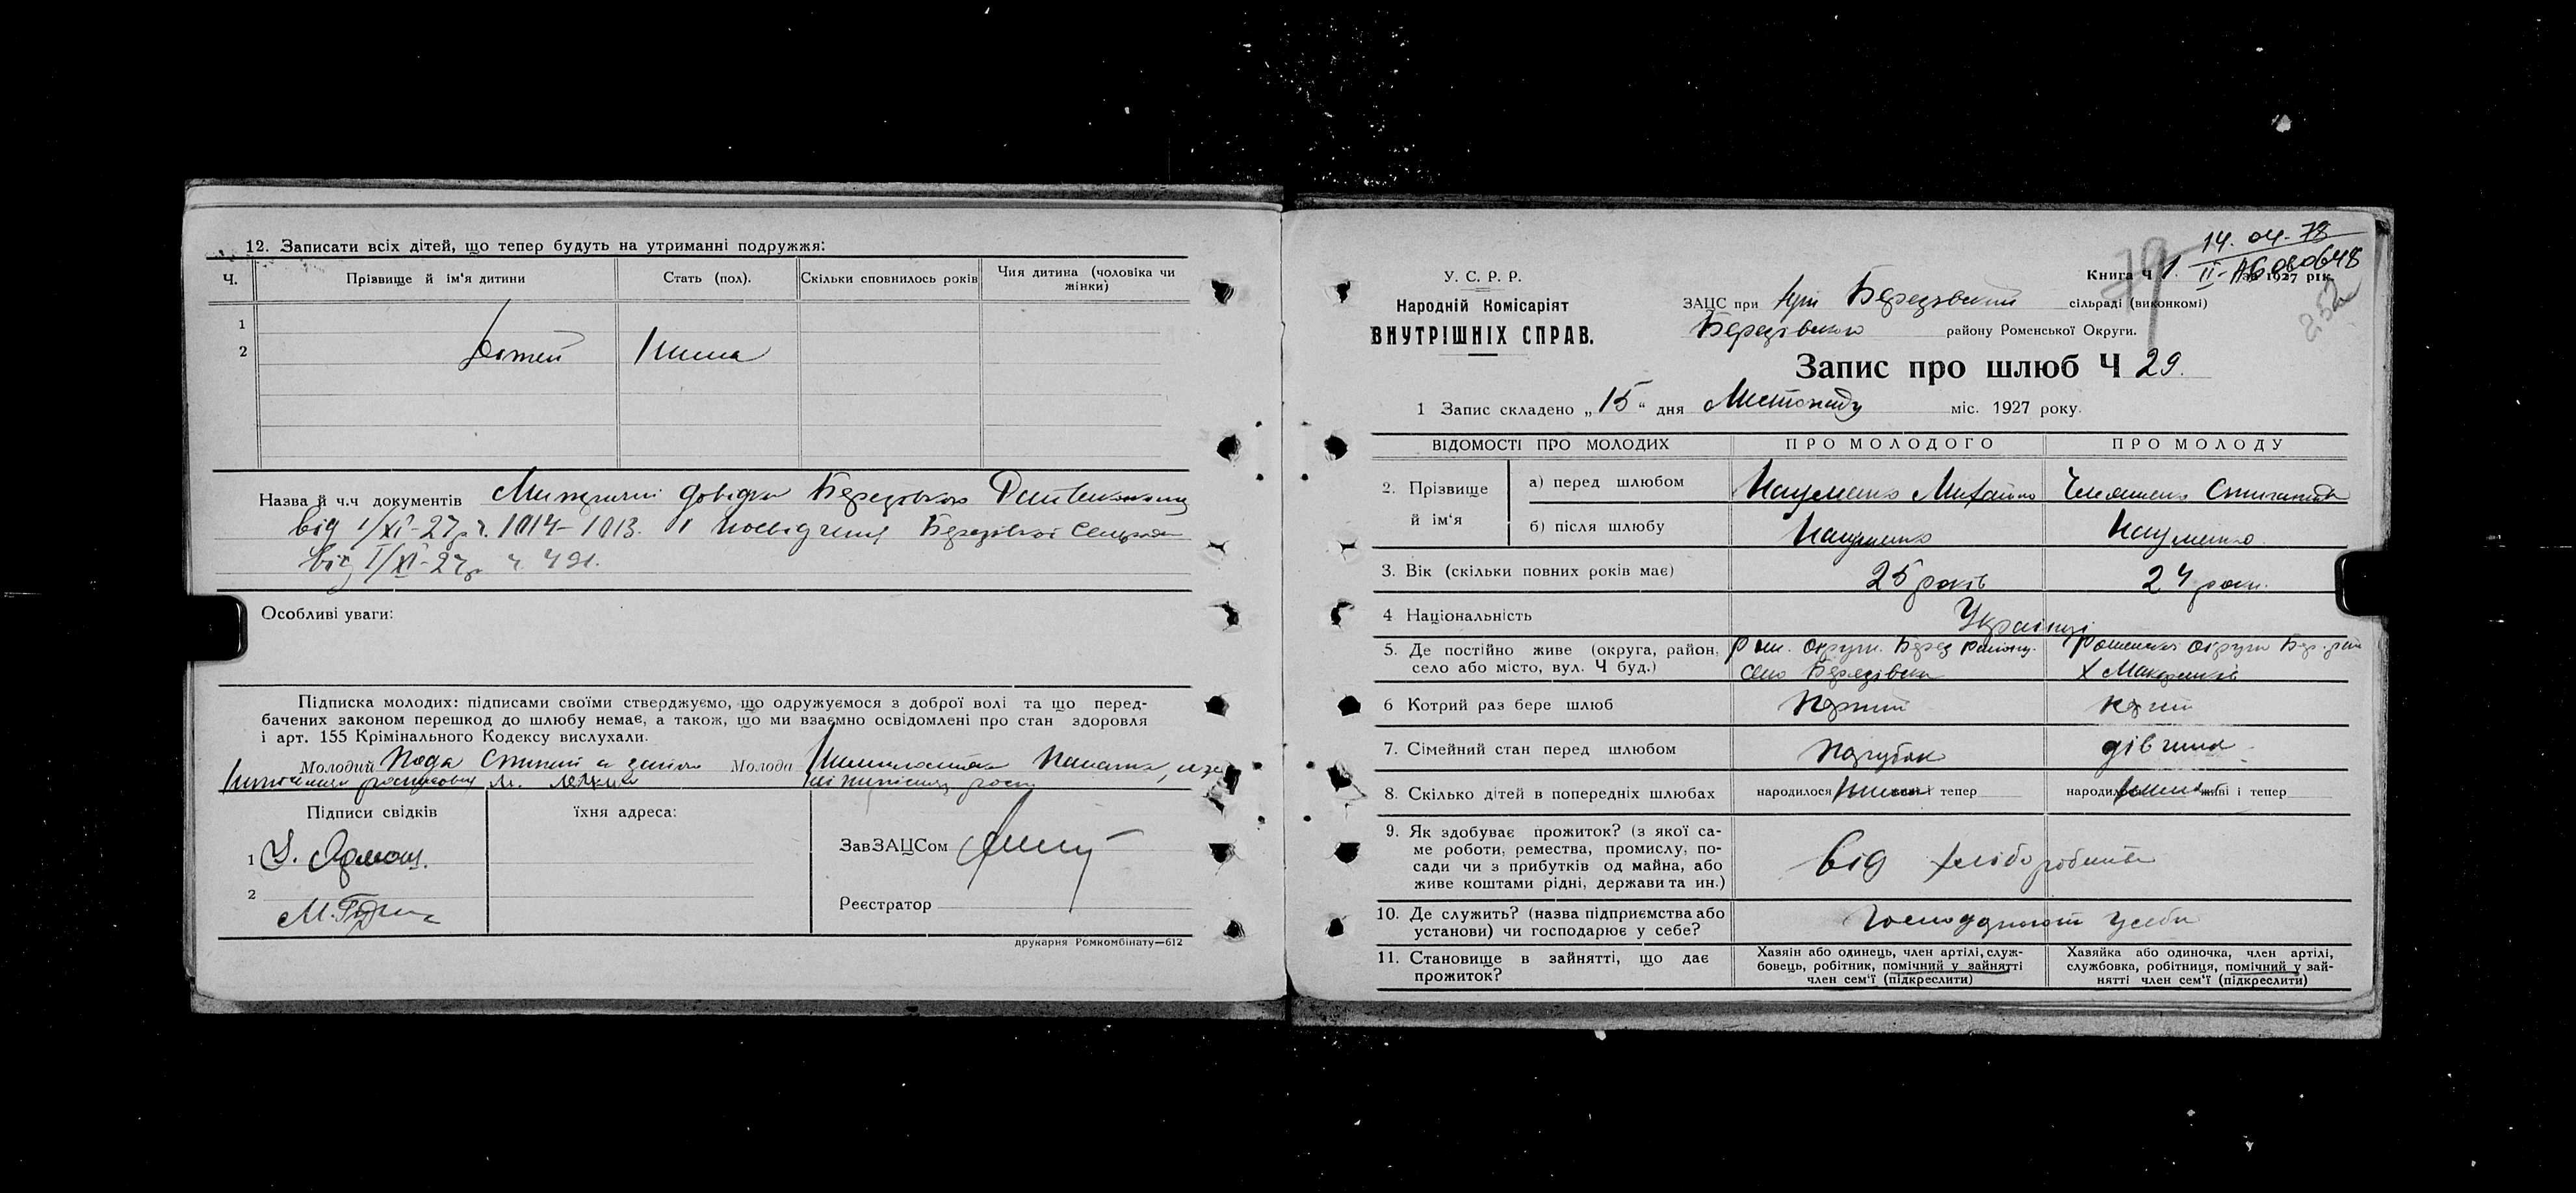 12. Записати всіх дітей, що тепер будуть на утриманні подружжя:
Ч.
Прізвище й ім'я дитини
Стать (пол).
Скільки сповнилось років
Чия дитина (чоловіка чи жінки)
1
2
Дітей
Нима
Назва й ч.ч документів
довідки Березівського
від 1/XI-27р. ч. 1014-1013. і Березівської Сільради
від 1/XI-27р ч. 491.
Особливі уваги:
Підписка молодих: підписами своїми стверджуємо, що одружуємося з доброї волі та що перед-
бачених законом перешкод до шлюбу немає, а також, що ми взаємно освідомлені про стан здоровля
і арт. 155 Крімінального Кодексу вислухали.
Молодий
Молода
Підписи свідків
їхня адреса:
1
2
ЗавЗАЦСом
Реєстратор
друкарня Ромкомбінату—612
14. 04. 78
II-АБ 080648
79
252
У. С. Р. Р.
Народній Комісаріят
ВНУТРІШНІХ СПРАВ.
Книга Ч 1. за 1927 рік
ЗАЦС при при Березівській сільраді (виконкомі)
Березівського району Роменської Округи.
Запис про шлюб Ч 29.
1 Запис складено „15“ дня Листопаду міс. 1927 року.
ВІДОМОСТІ ПРО МОЛОДИХ
ПРО МОЛОДОГО
ПРО МОЛОДУ
2. Прізвище й ім'я
а) перед шлюбом
Науменко Михайло
б) після шлюбу
Науменко
Науменко
3. Вік (скільки повних років має)
25 років
24 роки.
4 Національність
Українці
5. Де постійно живе (округа, район, село або місто, вул. Ч буд.)
Ром. округи. Берез району.
село Березівка
Роменської округи Бер. рай
6 Котрий раз бере шлюб
Перший
перший
7. Сімейний стан перед шлюбом
Парубок
дівчина
8. Скілько дітей в попередніх шлюбах
народилося нима живі і тепер
народилося нима живі і тепер
9. Як здобуває прожиток? (з якої са-
ме роботи, ремества, промислу, по-
сади чи з прибутків од майна, або
живе коштами рідні, держави та ин.)
від хліборобства
10. Де служить? (назва підприємства або
установи) чи господарює у себе?
Господарюють у себе
11. Становище в зайнятті, що дає
прожиток?
Хазяін або одинець, член артілі, служ-
бовець, робітник, помічний у зайнятті
член сем'ї (підкреслити)
Хавяйка або одиночка, член артілі,
службовка, робітниця, помічний у зай-
нятті член сем'ї (підкреслити)